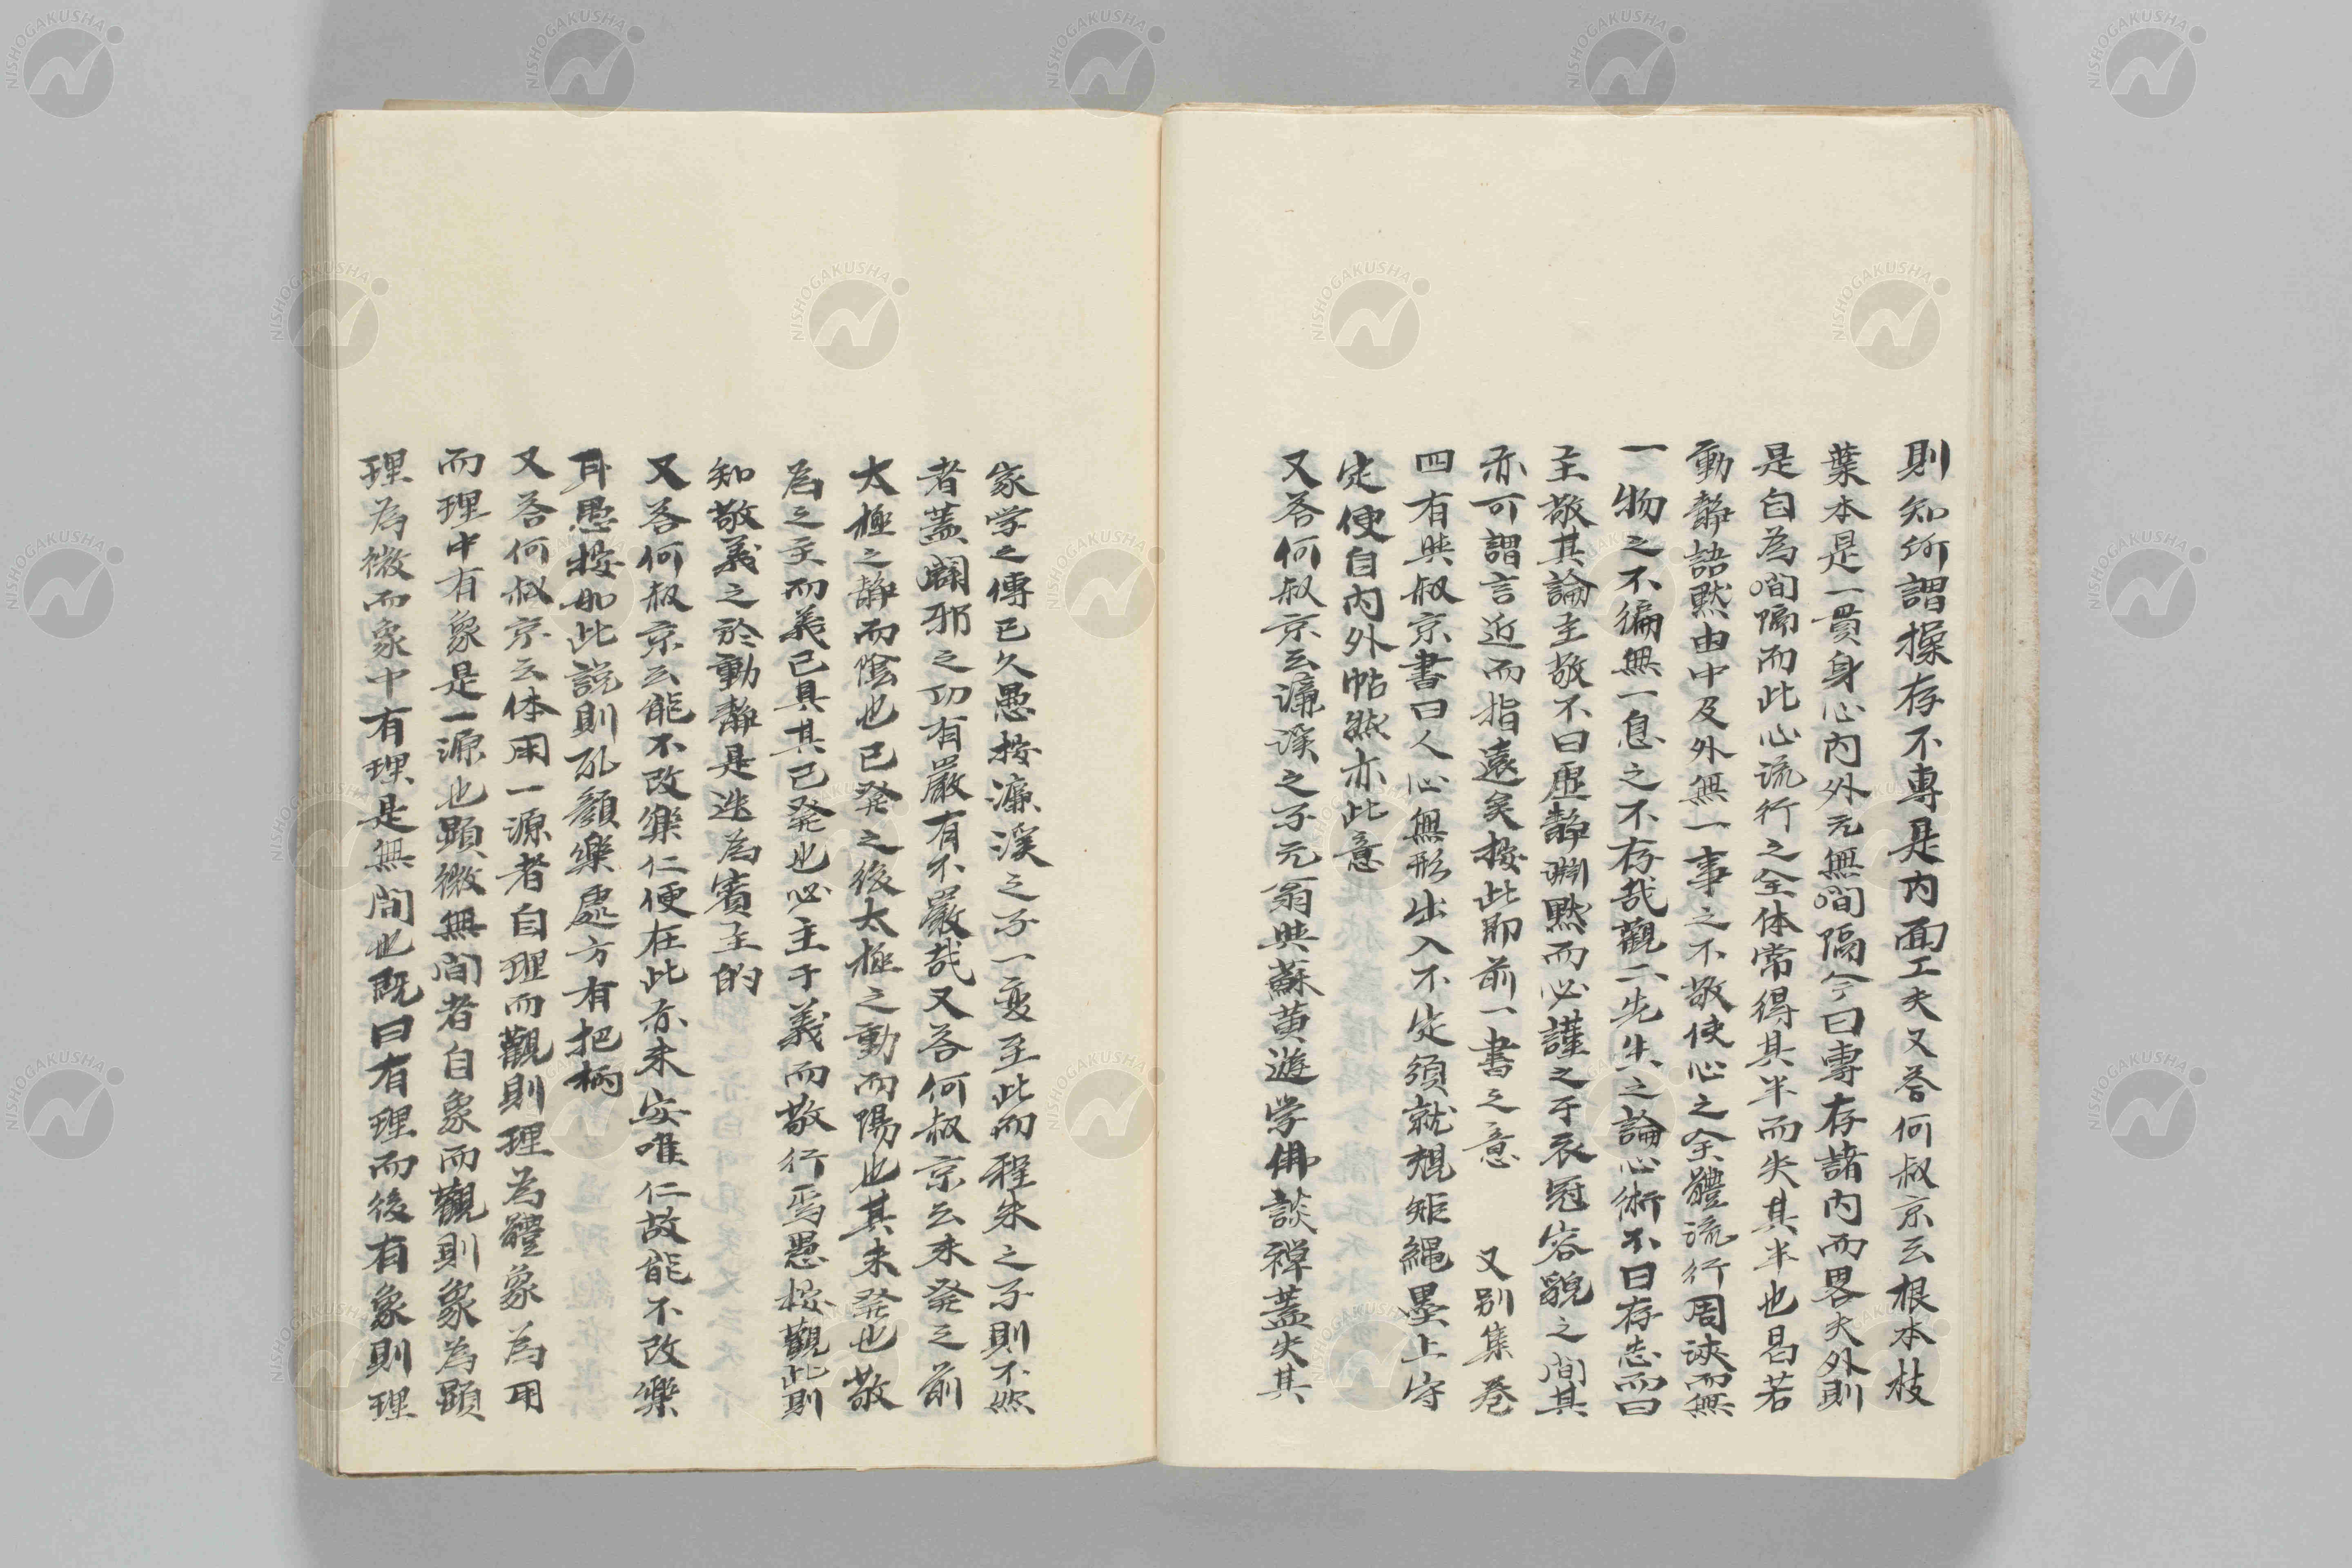 則知所謂操存不專是内面工夫又答何叔京云根本枝
葉本是一貫身心内外元無間隔今曰專存諸内而畧夫外則
是自為間隔而此心流行之全体常得其半而失其半也曷若
動静語黙由中及外無一事之不敬使心之全體流行周浹而無
一物之不徧無一息之不存哉觀二先生之論心術不曰存志而曰
主敬其論主敬不曰虚静淵黙而必謹之于衣冠容貌之間其
亦可謂言近而指遠矣按此即前一書之意　又別集巻
四有與叔京書曰人心無形出入不定須就規矩縄墨上守
定便自内外帖然亦此意
又答何叔京云濂溪之子元翁與蘇黄遊学佛談禅蓋失其
家学之傳已久愚按濂溪之子一変至此而程朱之子則不然
者蓋闢邪之功有嚴有不嚴哉又答何叔京云未発之前
太極之静而陰也已発之後太極之動而陽也其未発也敬
為之主而義已具其已発也必主于義而敬行焉愚按觀此則
知敬義之於動静是迭為賓主的
又答何叔京云能不改樂仁便在此亦未安唯仁故能不改樂
耳愚按如此説則孔顔樂處方有把柄
又答何叔京云体用一源者自理而觀則理為體象為用
而理中有象是一源也顕微無間者自象而觀則象為顕
理為微而象中有理是無間也既曰有理而後有象則理
NISHOGAKUSHA